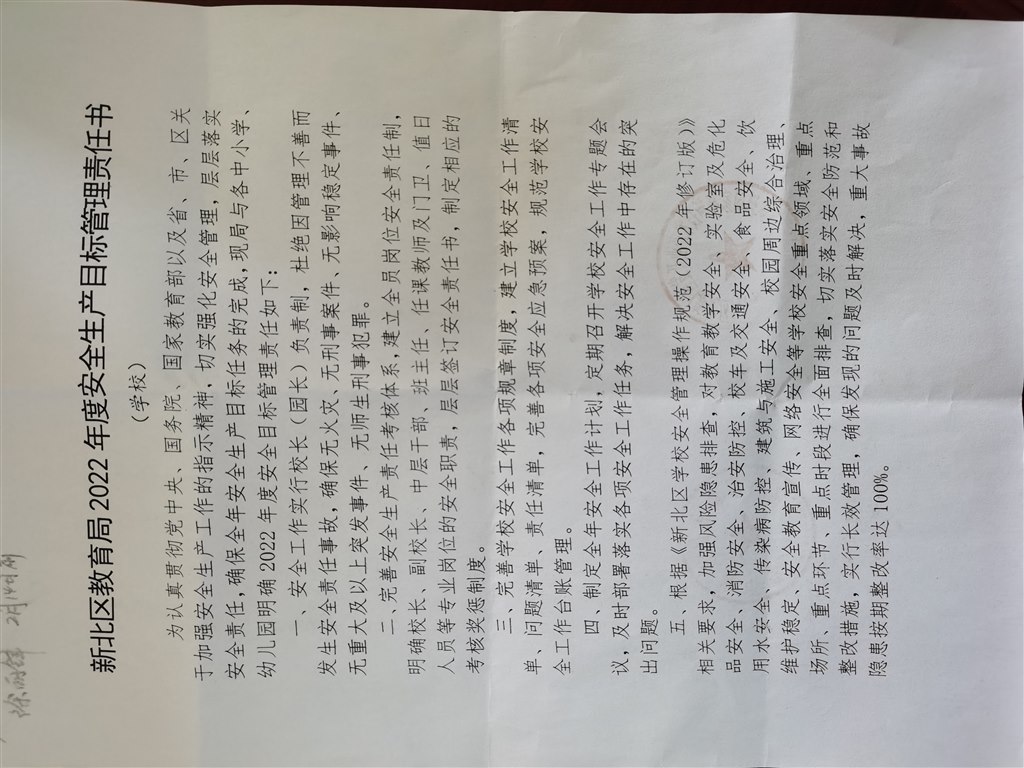 2月14日前
新北区教育局2022年度安全生产目标管理责任书
（学校）
为认真贯彻党中央、国务院、国家教育部以及省、市、区关
于加强安全生产工作的指示精神，切实强化安全管理，层层落实
安全责任，确保全年安全生产目标任务的完成，现局与各中小学、
幼儿园明确2022年度安全目标管理责任如下：
一、安全工作实行校长（园长）负责制，杜绝因管理不善而
发生安全责任事故，确保无火灾、无刑事案件、无影响稳定事件、
无重大及以上突发事件、无师生刑事犯罪。
二、完善安全生产责任考核体系，建立全员岗位安全责任制，
明确校长、副校长、中层干部、班主任、任课教师及门卫、值日
人员等专业岗位的安全职责，层层签订安全责任书，制定相应的
考核奖惩制度。
三、完善学校安全工作各项规章制度，建立学校安全工作清
单、问题清单、责任清单，完善各项安全应急预案，规范学校安
全工作台账管理。
四、制定全年安全工作计划，定期召开学校安全工作专题会
议，及时部署落实各项安全工作任务，解决安全工作中存在的突
出问题。
五、根据《新北区学校安全管理操作规范（2022年修订版）》
相关要求，加强风险隐患排查，对教育教学安全、实验室及危化
品安全、消防安全、治安防控、校车及交通安全、食品安全、饮
用水安全、传染病防控、建筑与施工安全、校园周边综合治理、
维护稳定、安全教育宣传、网络安全等学校安全重点领域、重点
场所、重点环节、重点时段进行全面排查，切实落实安全防范和
整改措施，实行长效管理，确保发现的问题及时解决，重大事故
隐患按期整改率达100%。